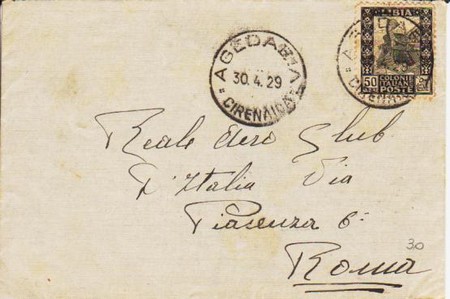 AGEDABIA
30.4.29
CIRENAICA
LIBIA
50
COLONIE
ITALIANE
POSTE
CIRENAICA
Reale Aero Club
D'Italia Via
Piacenza 6
Roma
30